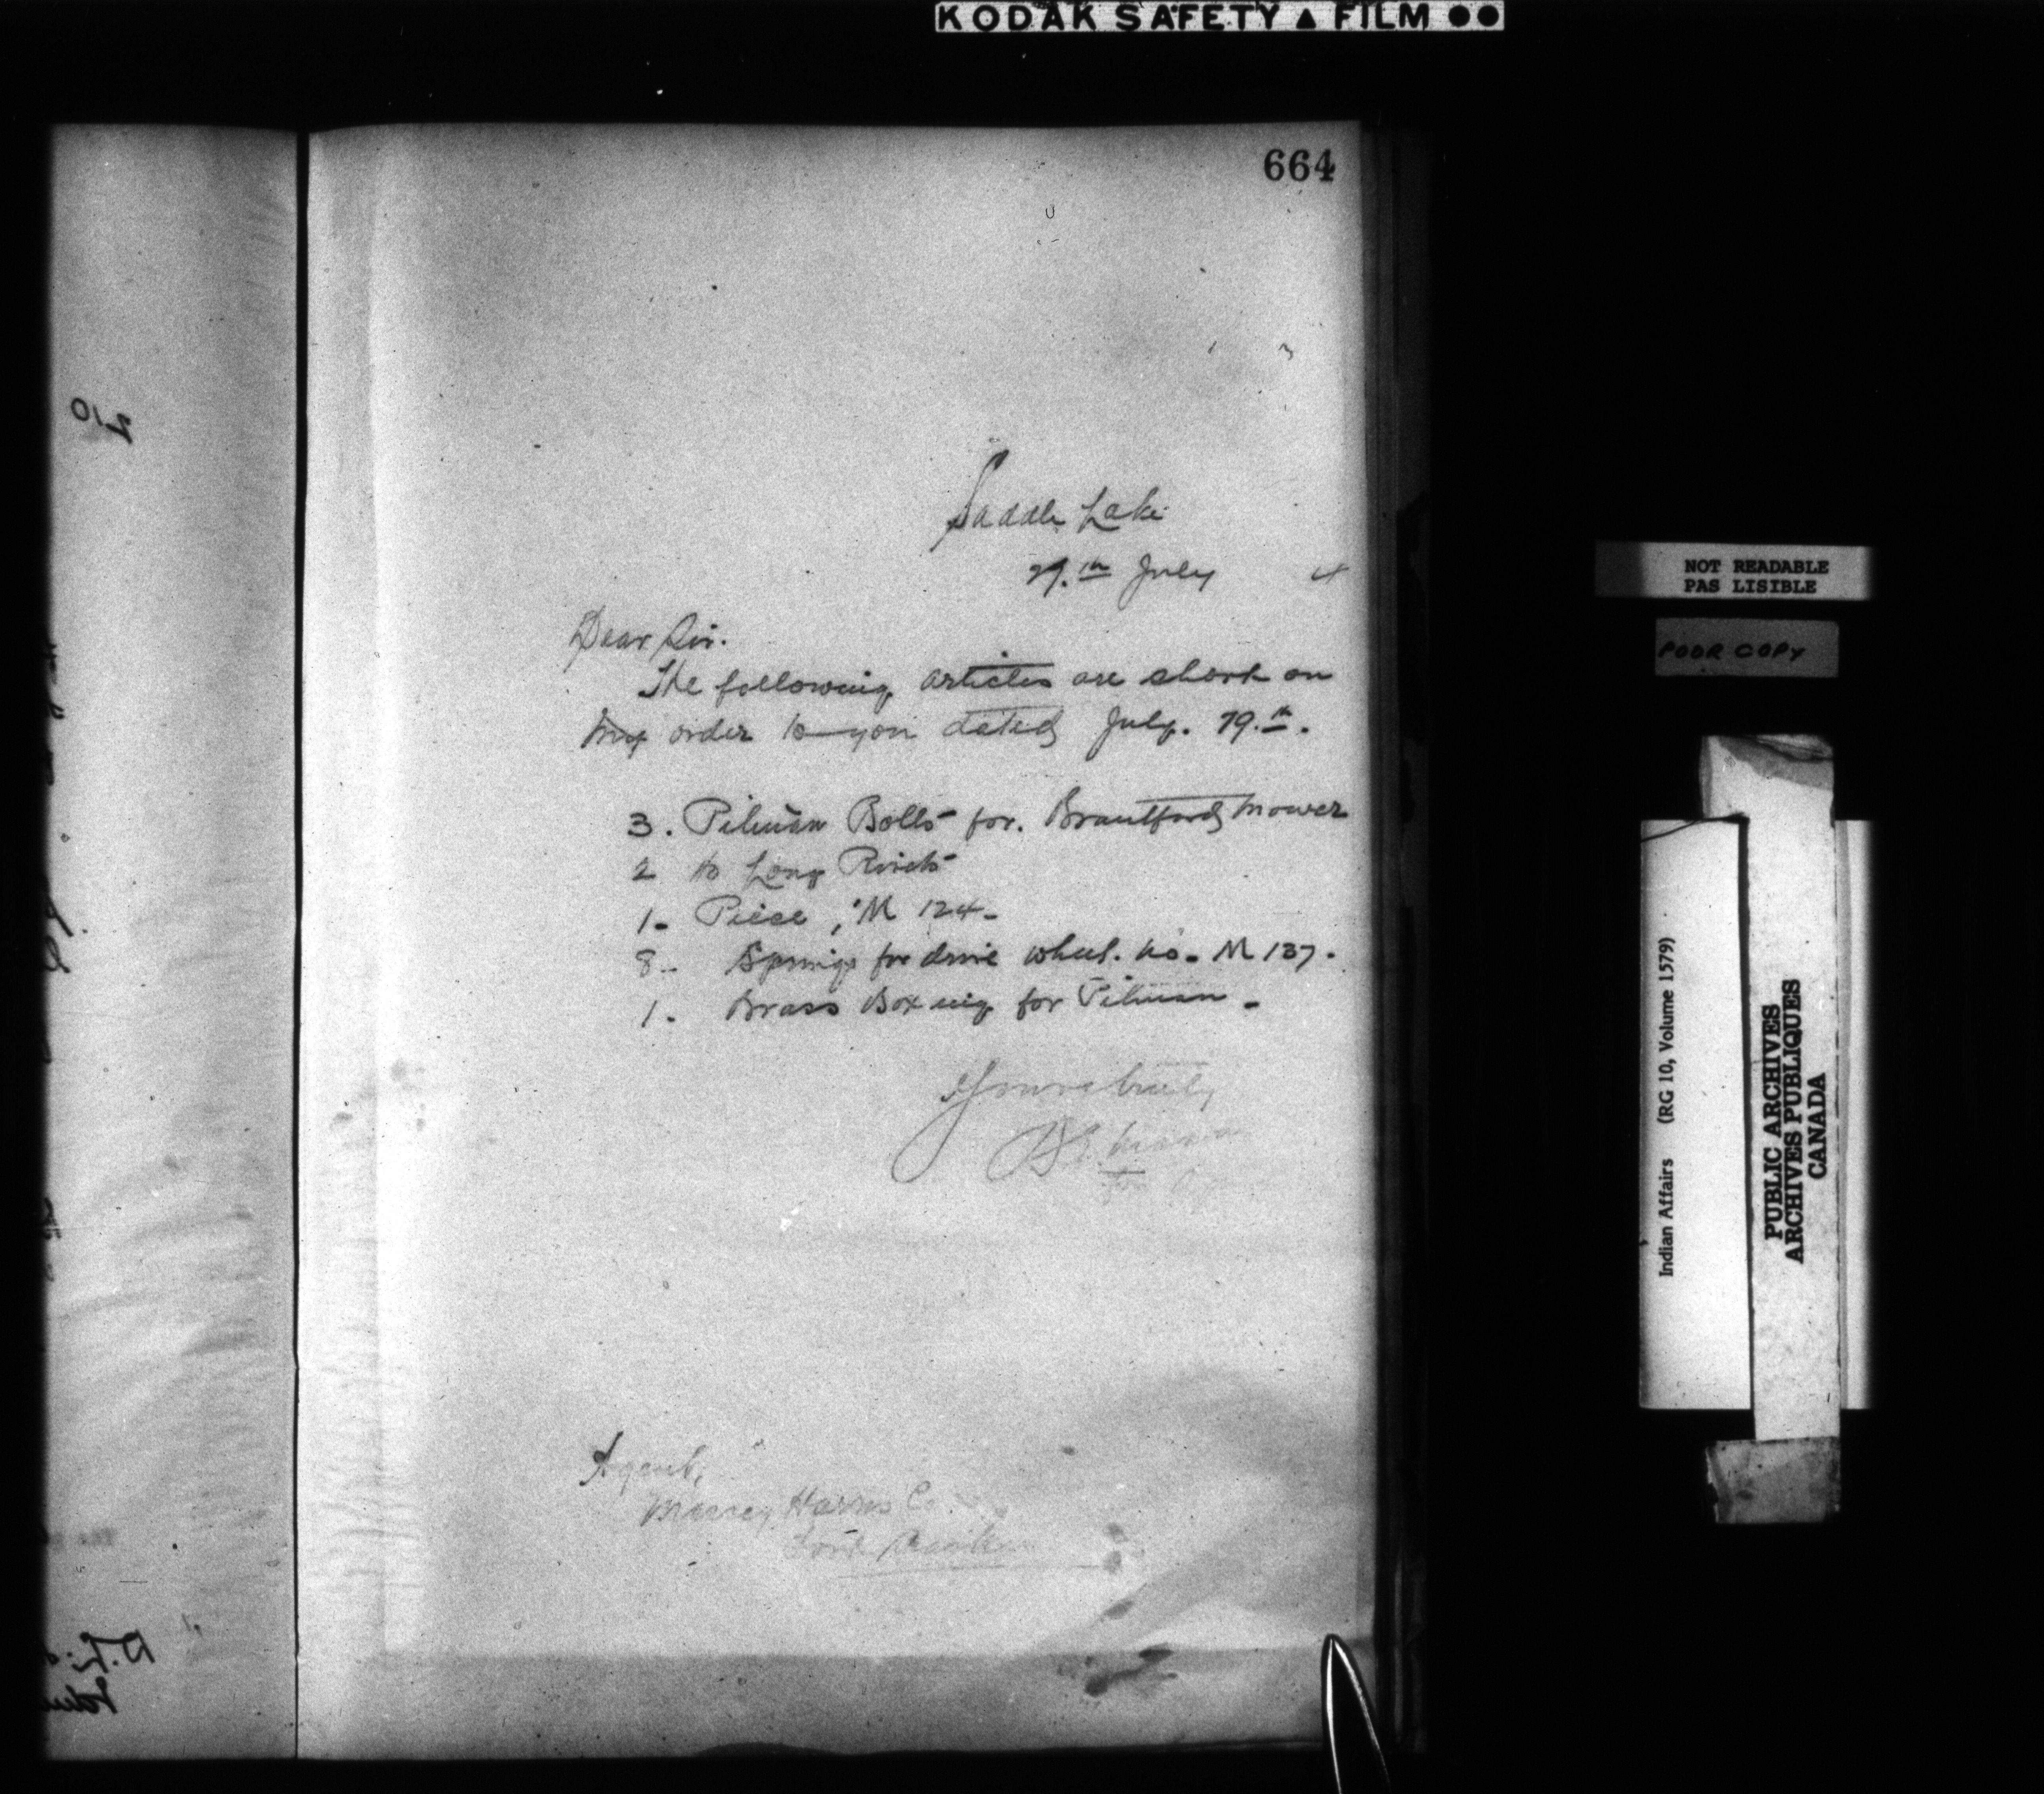 KODAK SAFETY ▲ FILM ●●
664
Saddle Lake
29.th July 4
Dear Sir.
The following articles are short on
my order to you dated July. 19.th.
3. Pitman Bolts for. Brantford Mower
2 Long Rivets
1- Piece, "M 124-
8- Springs for drive wheel. No- M 137.
1- Brass Boxing for Pitman-
Yours truly
Agent,
Massey Harris Co.
NOT READABLE
PAS LISIBLE
POOR COPY
Indian Affairs (RG 10, Volume 1579)
PUBLIC ARCHIVES
ARCHIVES PUBLIQUES
CANADA